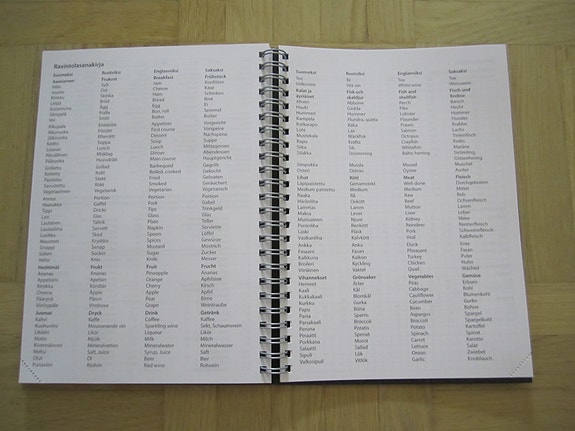 Ravintolasanakirja
Suomeksi Ruotsiksi Englanniksi Saksaksi
Aamiainen Frukost Breakfast Frühstück
Hillo Sylt Jam Konfitüre
Juusto Ost Cheese Käse
Kinkku Skinka Ham Schinken
Leipä Bröd Bread Brot
Kananmuna Ägg Egg Ei
Sämpylä Fralla Bun, roll Semmel
Voi Smör Butter Butter
Alkupala Förrätt Appetizer Vorgericht
Alkuruoka Förrätter First course Vorspeise
Jälkiruoka Efterrätt Dessert Nachspeise
Keitto Soppa Soup Suppe
Lounas Lunch Lunch Mittagessen
Päivällinen Middag Dinner Abendessen
Pääruoka Main course Hauptgericht
Grillattu Grillad Barbequed Gegrillt
Keitetty Kokt Boiled, cooked Gekocht
Paistettu Stekt Fried Gebraten
Savustettu Rökt Smoked Geräuchert
Vegetaarinen Vegetarisk Vegetarian Vegetarisch
Annos Portion Portion Portion
Haarukka Gaffel Fork Gabel
Tippi Dricks Tips Trinkgeld
Lasi Glas Glass Glas
Lautanen Tallrik Plate Teller
Lautasliina Servett Napkin Serviette
Lusikka Sked Spoon Löffel
Mausteet Kryddor Spices Gewürze
Sinappi Senap Mustard Mostrich
Sokeri Socker Sugar Zucker
Veitsi Kniv Knife Messer
Hedelmät Frukt Fruit Frucht
Ananas Ananas Pineapple Ananas
Appelsiini Apelsin Orange Apfelsine
Kirsikka Körsbär Cherry Kirsch
Omena Äpple Apple Apfel
Päärynä Päron Pear Birne
Viinirypäle Vindruva Grape Weintraube
Juomat Dryck Drink Getränk
Kahvi Kaffe Coffee Kaffee
Kuohuviini Mousserande vin Sparkling wine Sekt, Schaumwein
Likööri Likör Liqueur Likör
Maito Mjölk Milk Milch
Kivennäisvesi Mineralvatten Mineralwater Mineralwasser
Mehu Saft, Juice Syrup, Juice Saft
Olut Öl Beer Bier
Punaviini Rödvin Red wine Rotwein
Suomeksi Ruotsiksi Englanniksi Saksaksi
Tee Te Tea Tee
Valkoviini Vitt vin White wine Weisswein
Kalat ja Fisk och Fish and Fisch und
äyriäiset skaldjur shellfish Krebse
Ahven Abborre Perch Barsch
Hauki Gädda Pike Hecht
Hummeri Hummer Lobster Hummer
Kampela Flundra, spätta Flounder Flunder
Katkarapu Räka
Lohi Lax Salmon Lachs
Mustekala Bläckfisk Octopus Tintenfisch
Rapu Kräfta Crayfish Krebs
Siika Sik Whitefish
Silakka Strömming Baltic herring
Simpukka Mussla Mussel Muschel
Osteri Ostron Oyster Auster
Lihat Kött Meat Fleisch
Läpipaistettu Genomstekt Well done Durchgebraten
Medium Medium Medium Mittel
Raaka Rå Raw Roh
Häränliha Oxkött Beef
Lammas Lamm Lamb Lamm
Maksa Lever Liver Leber
Munuainen Njure Kidney Niere
Poronliha Renkött Reindeer Rentierfleisch
Possu Fläsk Pork Schweinefleisch
Vasikanliha Kalvkött Veal Kalbfleisch
Ankka Anka Duck Ente
Fasaani Fasan Pheasant Fasan
Kalkkuna Kalkon Turkey Puter
Broileri Kyckling Chicken Huhn
Viiriäinen Vaktel Quail Wachtel
Vihannekset Grönsaker Vegetables Gemüse
Herneet Ärter Peas Erbsen
Kaali Kål Cabbage Kohl
Kukkakaali Blomkål Cauliflower Blumenkohl
Kurkku Gurka Cucumber Gurke
Papu Böna Bean Bohne
Parsa Sparris Asparagus Spargel
Parsakaali Broccoli Broccoli Spargelkohl
Peruna Potatis Potato Kartoffel
Pinaatti Spenat Spinach Spinat
Porkkana Morot Carrot Karotte
Salaatti Sallad Lettuce Salat
Sipuli Lök Onion Zwiebel
Valkosipuli Vitlök Garlic Knoblauch